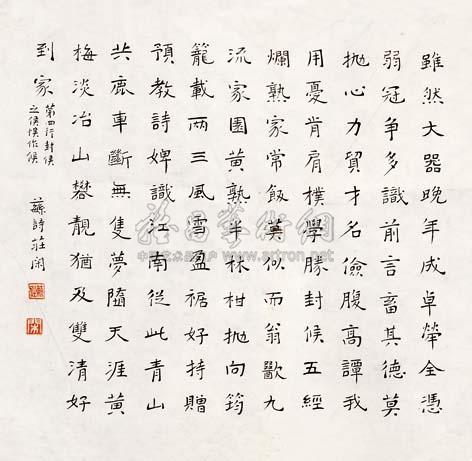 雖然大器晚年成卓犖全憑
弱冠爭多識前言畜其德莫
拋心力貿才名儉腹高譚我
用憂肯肩樸學勝封候五經
爛熟家常飯莫似而翁歠九
流家園黃熟半林柑拋向筠
籠載兩三風雪盈裾好持贈
預教詩婢識江南從此青山
共鹿車斷無隻夢隨天涯黃
梅淡冶山礬靚猶及雙清好
到家
第四行封侯
之侯悞作候
詩莊閑
雅昌藝術網
artron.net